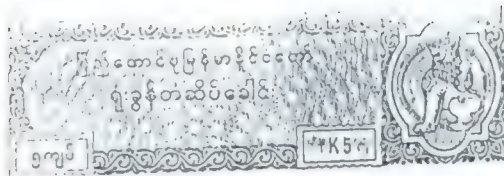 ပြည်ထောင်စုမြန်မာနိုင်ငံတော်
ရုံးခွန်တံဆိပ်ခေါင်း
၅ကျပ် K5